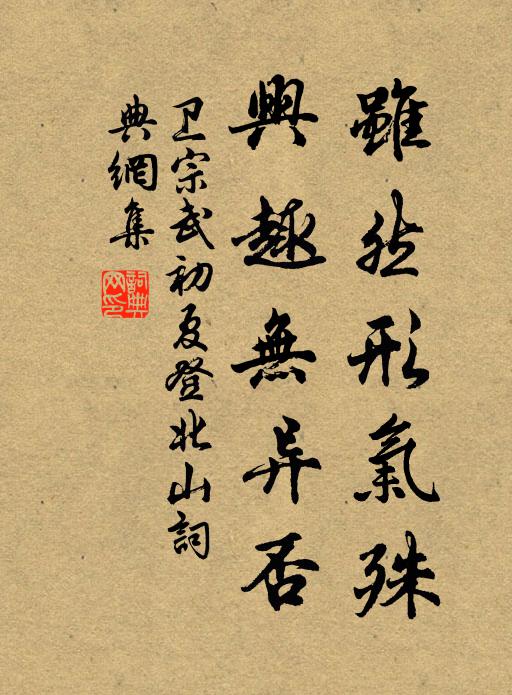 雖然形氣殊
興趣無异否
卫宗武初夏登北山詞
典網集
詞典网印